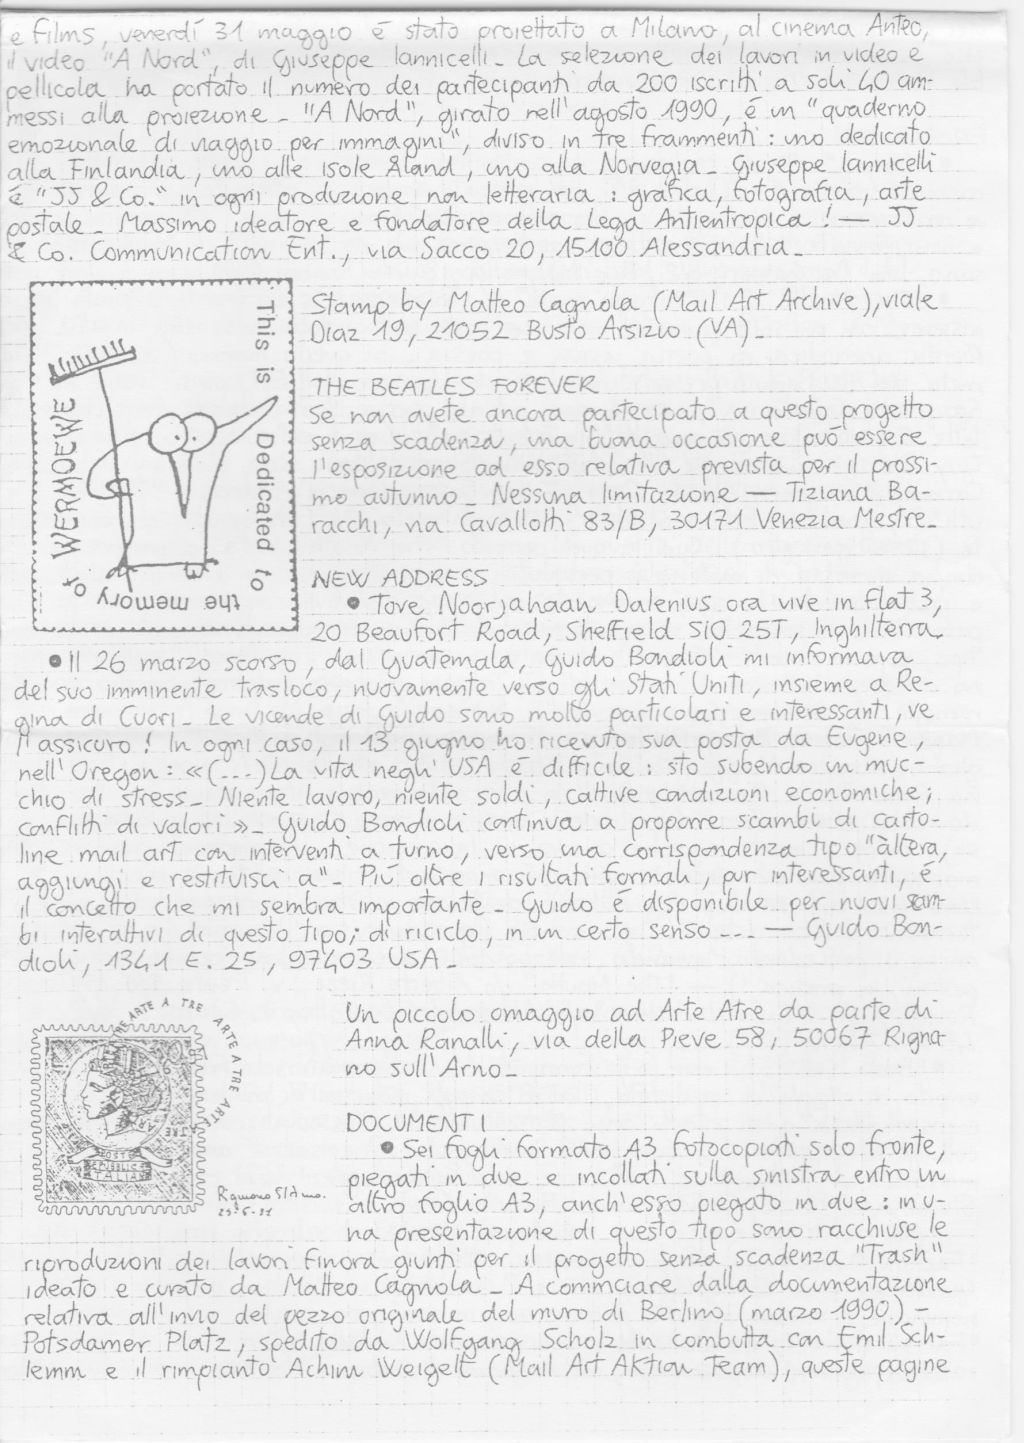 e Films, venerdí 31 maggio é stato proiettato a Milano, al cinema Anteo,
il video "A Nord", di Giuseppe Iannicelli_ La selezione dei lavori in video e
pellicola ha portato il numero dei partecipanti da 200 iscritti a soli 40 am-
messi alla proiezione_ "A Nord", girato nell'agosto 1990, é un "quaderno
emozionale di viaggio per immagini", diviso in tre frammenti: uno dedicato
alla Finlandia, uno alle isole Åland, uno alla Norvegia_ Giuseppe Iannicelli
é "JJ & Co." in ogni produzione non letteraria: grafica, fotografia, arte
postale_ Massimo ideatore e fondatore della Lega Antientropica! — JJ
& Co. Communication Ent., via Sacco 20, 15100 Alessandria_
This is Dedicated to
the memory of
WERMOEWE
Stamp by Matteo Cagnola (Mail Art Archive), viale
Diaz 19, 21052 Busto Arsizio (VA)_
THE BEATLES FOREVER
Se non avete ancora partecipato a questo progetto
senza scadenza, una buona occasione puó essere
l'esposizione ad esso relativa prevista per il prossi-
mo autunno_ Nessuna limitazione — Tiziana Ba-
racchi, via Cavallotti 83/B, 30171 Venezia Mestre_
NEW ADDRESS
• Tove Noorjahaan Dalenius ora vive in Flat 3,
20 Beaufort Road, Sheffield SIO 25T, Inghilterra_
• Il 26 marzo scorso, dal Guatemala, Guido Bondioli mi informava
del suo imminente trasloco, nuovamente verso gli Stati Uniti, insieme a Re-
gina di Cuori_ Le vicende di Guido sono molto particolari e interessanti, ve
l'assicuro! In ogni caso, il 13 giugno ho ricevuto sua posta da Eugene,
nell'Oregon: «(...) La vita negli USA é difficile: sto subendo un muc-
chio di stress_ Niente lavoro, niente soldi, cattive condizioni economiche;
conflitti di valori»_ Guido Bondioli continua a proporre scambi di carto-
line mail art con interventi a turno, verso una corrispondenza tipo "altera,
aggiungi e restituisci a"_ Piú oltre i risultati formali, pur interessanti, é
il concetto che mi sembra importante_ Guido é disponibile per nuovi scam-
bi interattivi di questo tipo; di riciclo, in un certo senso ... — Guido Bon-
dioli, 1341 E. 25, 97403 USA_
ARTE A TRE ARTE A TRE ARTE
POSTE
REPUBBLICA
ITALIANA
Rignano S/Arno.
Un piccolo omaggio ad Arte Atre da parte di
Anna Ranalli, via della Pieve 58, 50067 Rigna-
no sull'Arno_
DOCUMENTI
• Sei fogli formato A3 fotocopiati solo fronte,
piegati in due e incollati sulla sinistra entro un
altro foglio A3, anch'esso piegato in due: in u-
na presentazione di questo tipo sono racchiuse le
riproduzioni dei lavori finora giunti per il progetto senza scadenza "Trash"
ideato e curato da Matteo Cagnola_ A cominciare dalla documentazione
relativa all'invio del pezzo originale del muro di Berlino (marzo 1990) -
Potsdamer Platz, spedito da Wolfgang Scholz in combutta con Emil Sch-
lemm e il rimpianto Achim Weigelt (Mail Art Aktion Team), queste pagine